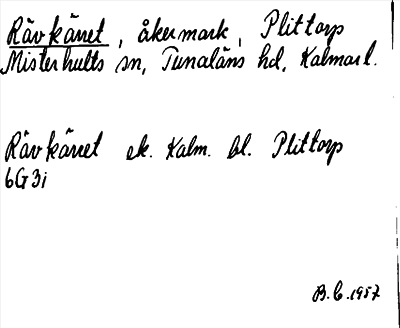 Rävkärret, åkermark, Plittorp
Misterhults sn, Tunaläns hd, Kalmar l.
Rävkärret ek. Kalm. bl. Plittorp
6G3i
B.C. 1957